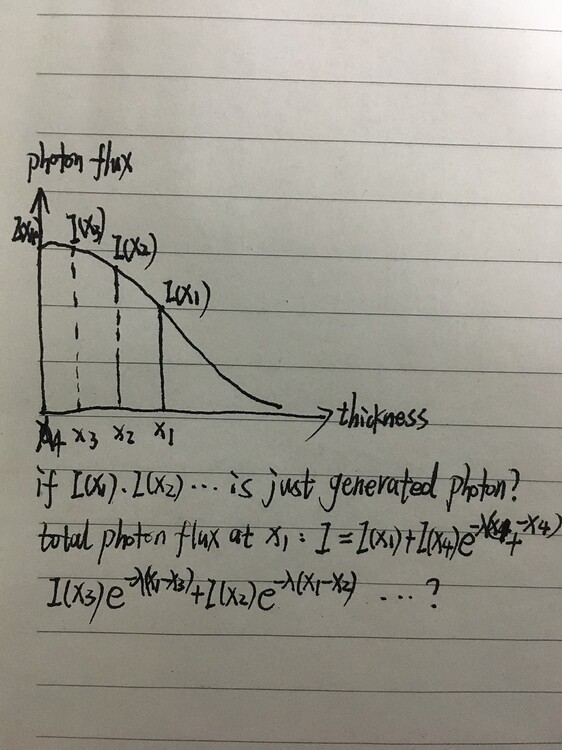 photon flux
I(x₃)
I(x₂)
I(x₁)
thickness
x₄ x₃ x₂ x₁
if I(x₁). I(x₂) ... is just generated photon?
total photon flux at x₁ : I = I(x₁) + I(x₄)e^-λ(x₁-x₄) +
I(x₃)e^-λ(x₁-x₃) + I(x₂)e^-λ(x₁-x₂) ... ?